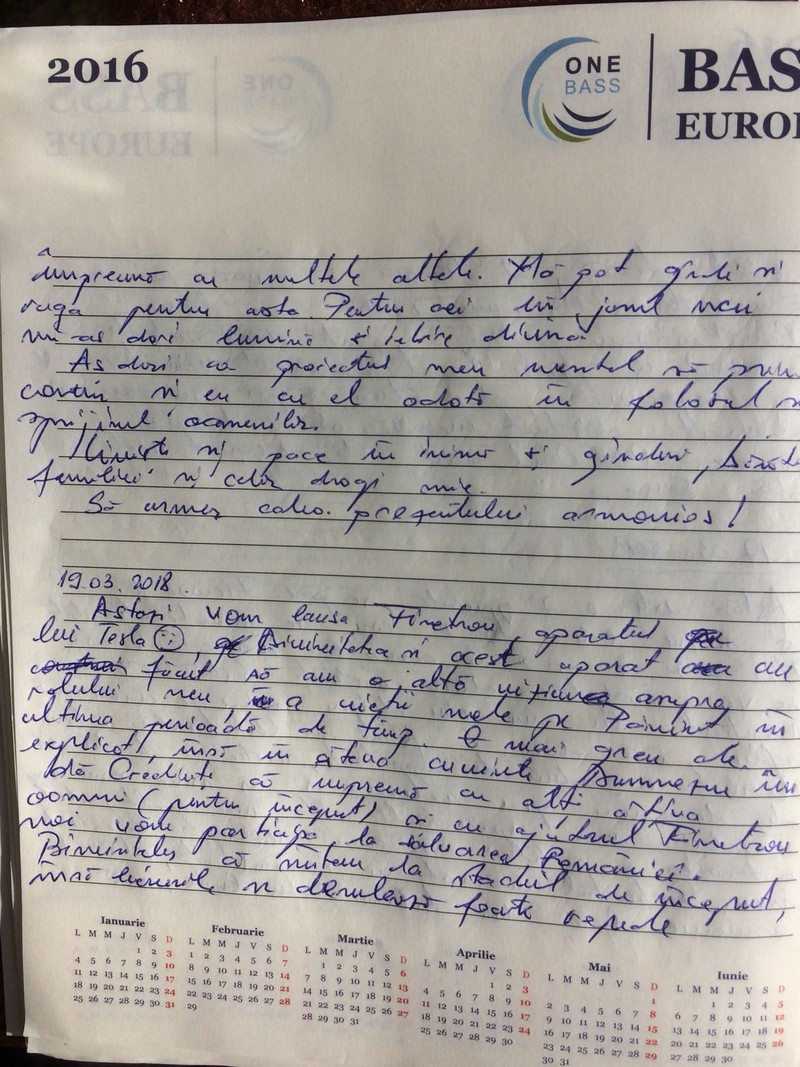 2016
ONE
BASS
BAS
EUROP
împreună cu multele altele. Mă pot gândi și
ruga pentru asta. Pentru cei din jurul meu
mi-aș dori lumină și iubire divină
Aș dori ca proiectul meu mental să prindă
contur și eu cu el odată în folosul și
sprijinul oamenilor.
Liniște și pace în inimă și gânduri,
familiei și celor drogi mie.
Să urmez calea prezentului armonios!
19.03.2018
Astăzi vom lansa Tinetron, aparatul
lui Tesla și acest aparat au
făcut să am o altă viziune asupra
rolului meu, a vieții mele pe Pământ în
ultima perioadă de timp. E mai greu de
explicat, însă în câteva cuvinte Dumnezeu îmi
dă Credința că împreună cu alți câțiva
oameni (pentru început) și cu ajutorul Tinetron
noi vom participa la salvarea României.
Bineînțeles că suntem la stadiul de început,
însă lucrurile se derulează foarte repede
Ianuarie
L M M J V S D
1 2 3
4 5 6 7 8 9 10
11 12 13 14 15 16 17
18 19 20 21 22 23 24
25 26 27 28 29 30 31
Februarie
L M M J V S D
1 2 3 4 5 6 7
8 9 10 11 12 13 14
15 16 17 18 19 20 21
22 23 24 25 26 27 28
29
Martie
L M M J V S D
1 2 3 4 5 6
7 8 9 10 11 12 13
14 15 16 17 18 19 20
21 22 23 24 25 26 27
28 29 30 31
Aprilie
L M M J V S D
1 2 3
4 5 6 7 8 9 10
11 12 13 14 15 16 17
18 19 20 21 22 23 24
25 26 27 28 29 30
Mai
L M M J V S D
1
2 3 4 5 6 7 8
9 10 11 12 13 14 15
16 17 18 19 20 21 22
23 24 25 26 27 28 29
30 31
Iunie
L M M J V S D
1 2 3 4 5
6 7 8 9 10 11 12
13 14 15 16 17 18 19
20 21 22 23 24 25 26
27 28 29 30